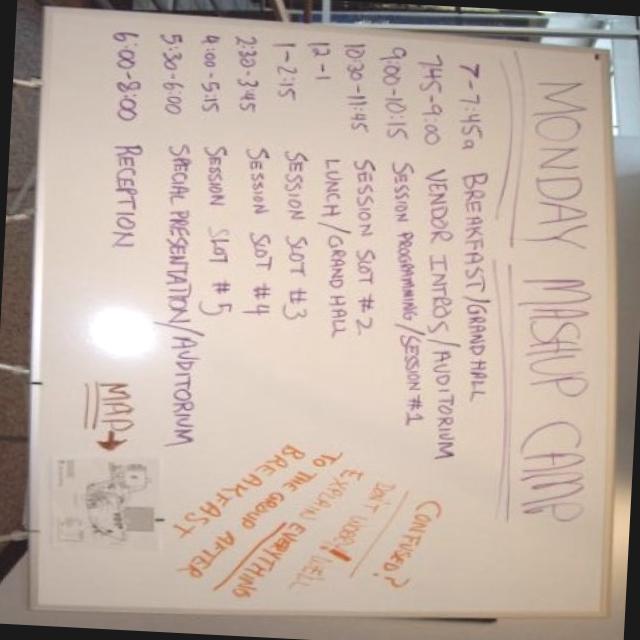 MONDAY MASHUP CAMP
7-7:45a BREAKFAST/GRAND HALL
7:45-9:00 VENDOR INTROS/AUDITORIUM
9:00-10:15 SESSION PROGRAMMING/SESSION #1
10:30-11:45 SESSION SLOT #2
12-1 LUNCH/GRAND HALL
1-2:15 SESSION SLOT #3
2:30-3:45 SESSION SLOT #4
4:00-5:15 SESSION SLOT #5
5:30-6:00 SPECIAL PRESENTATION/AUDITORIUM
6:00-8:00 RECEPTION
CONFUSED?
DON'T WORRY! WE'LL
EXPLAIN EVERYTHING
TO THE GROUP AFTER
BREAKFAST
MAP